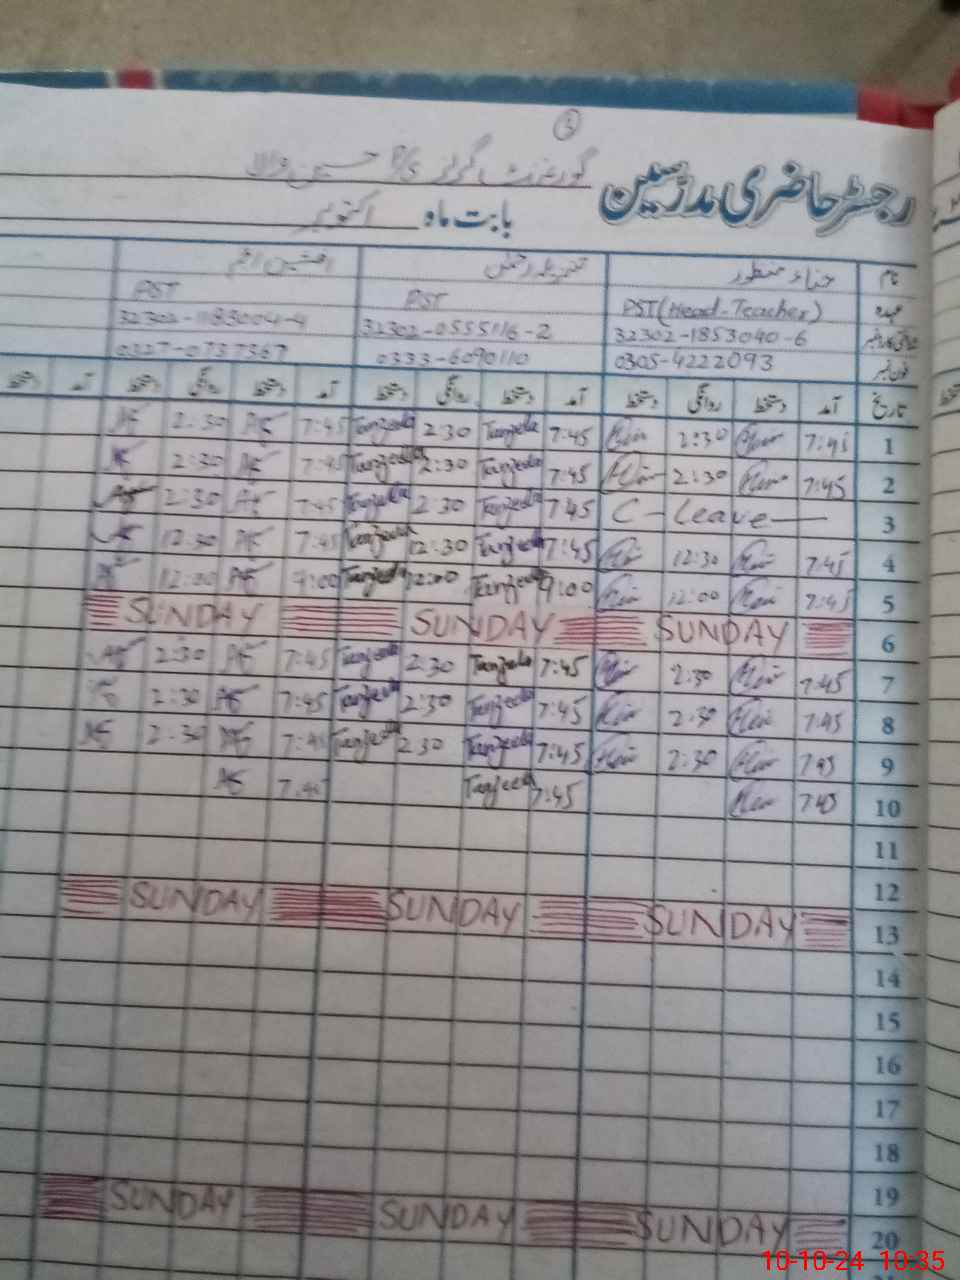 3
رجسٹر حاضری مدرسین گورنمنٹ گرلز P/S حسین والا
بابت ماہ اکتوبر
نام حناء منظور
عہدہ PST (Head-Teacher) PST PST
32302-1853040-6 32302-0555116-2 32302-1183004-4
فون نمبر 0305-4222093 0333-6090110 0327-0737367
تاریخ آمد دستخط روانگی دستخط آمد دستخط روانگی دستخط آمد دستخط روانگی دستخط آمد دستخط
1 7:45 2:30 7:45 Tanzeela 2:30 Tanzeela 7:45 2:30
2 7:45 2:30 7:45 Tanzeela 2:30 Tanzeela 7:45 2:30
3 C-Leave 7:45 Tanzeela 2:30 Tanzeela 7:45 2:30
4 7:45 12:30 7:45 Tanzeela 12:30 Tanzeela 7:45 12:30
5 7:45 12:00 9:00 Tanzeela 12:00 Tanzeela 9:00 12:00
6 SUNDAY SUNDAY SUNDAY
7 7:45 2:30 7:45 Tanzeela 2:30 Tanzeela 7:45 2:30
8 7:45 2:30 7:45 Tanzeela 2:30 Tanzeela 7:45 2:30
9 7:45 2:30 7:45 Tanzeela 2:30 Tanzeela 7:45 2:30
10 7:45 7:45 Tanzeela 7:45
11
12
13 SUNDAY SUNDAY SUNDAY
14
15
16
17
18
19
20 SUNDAY SUNDAY SUNDAY
10-10-24 10:35